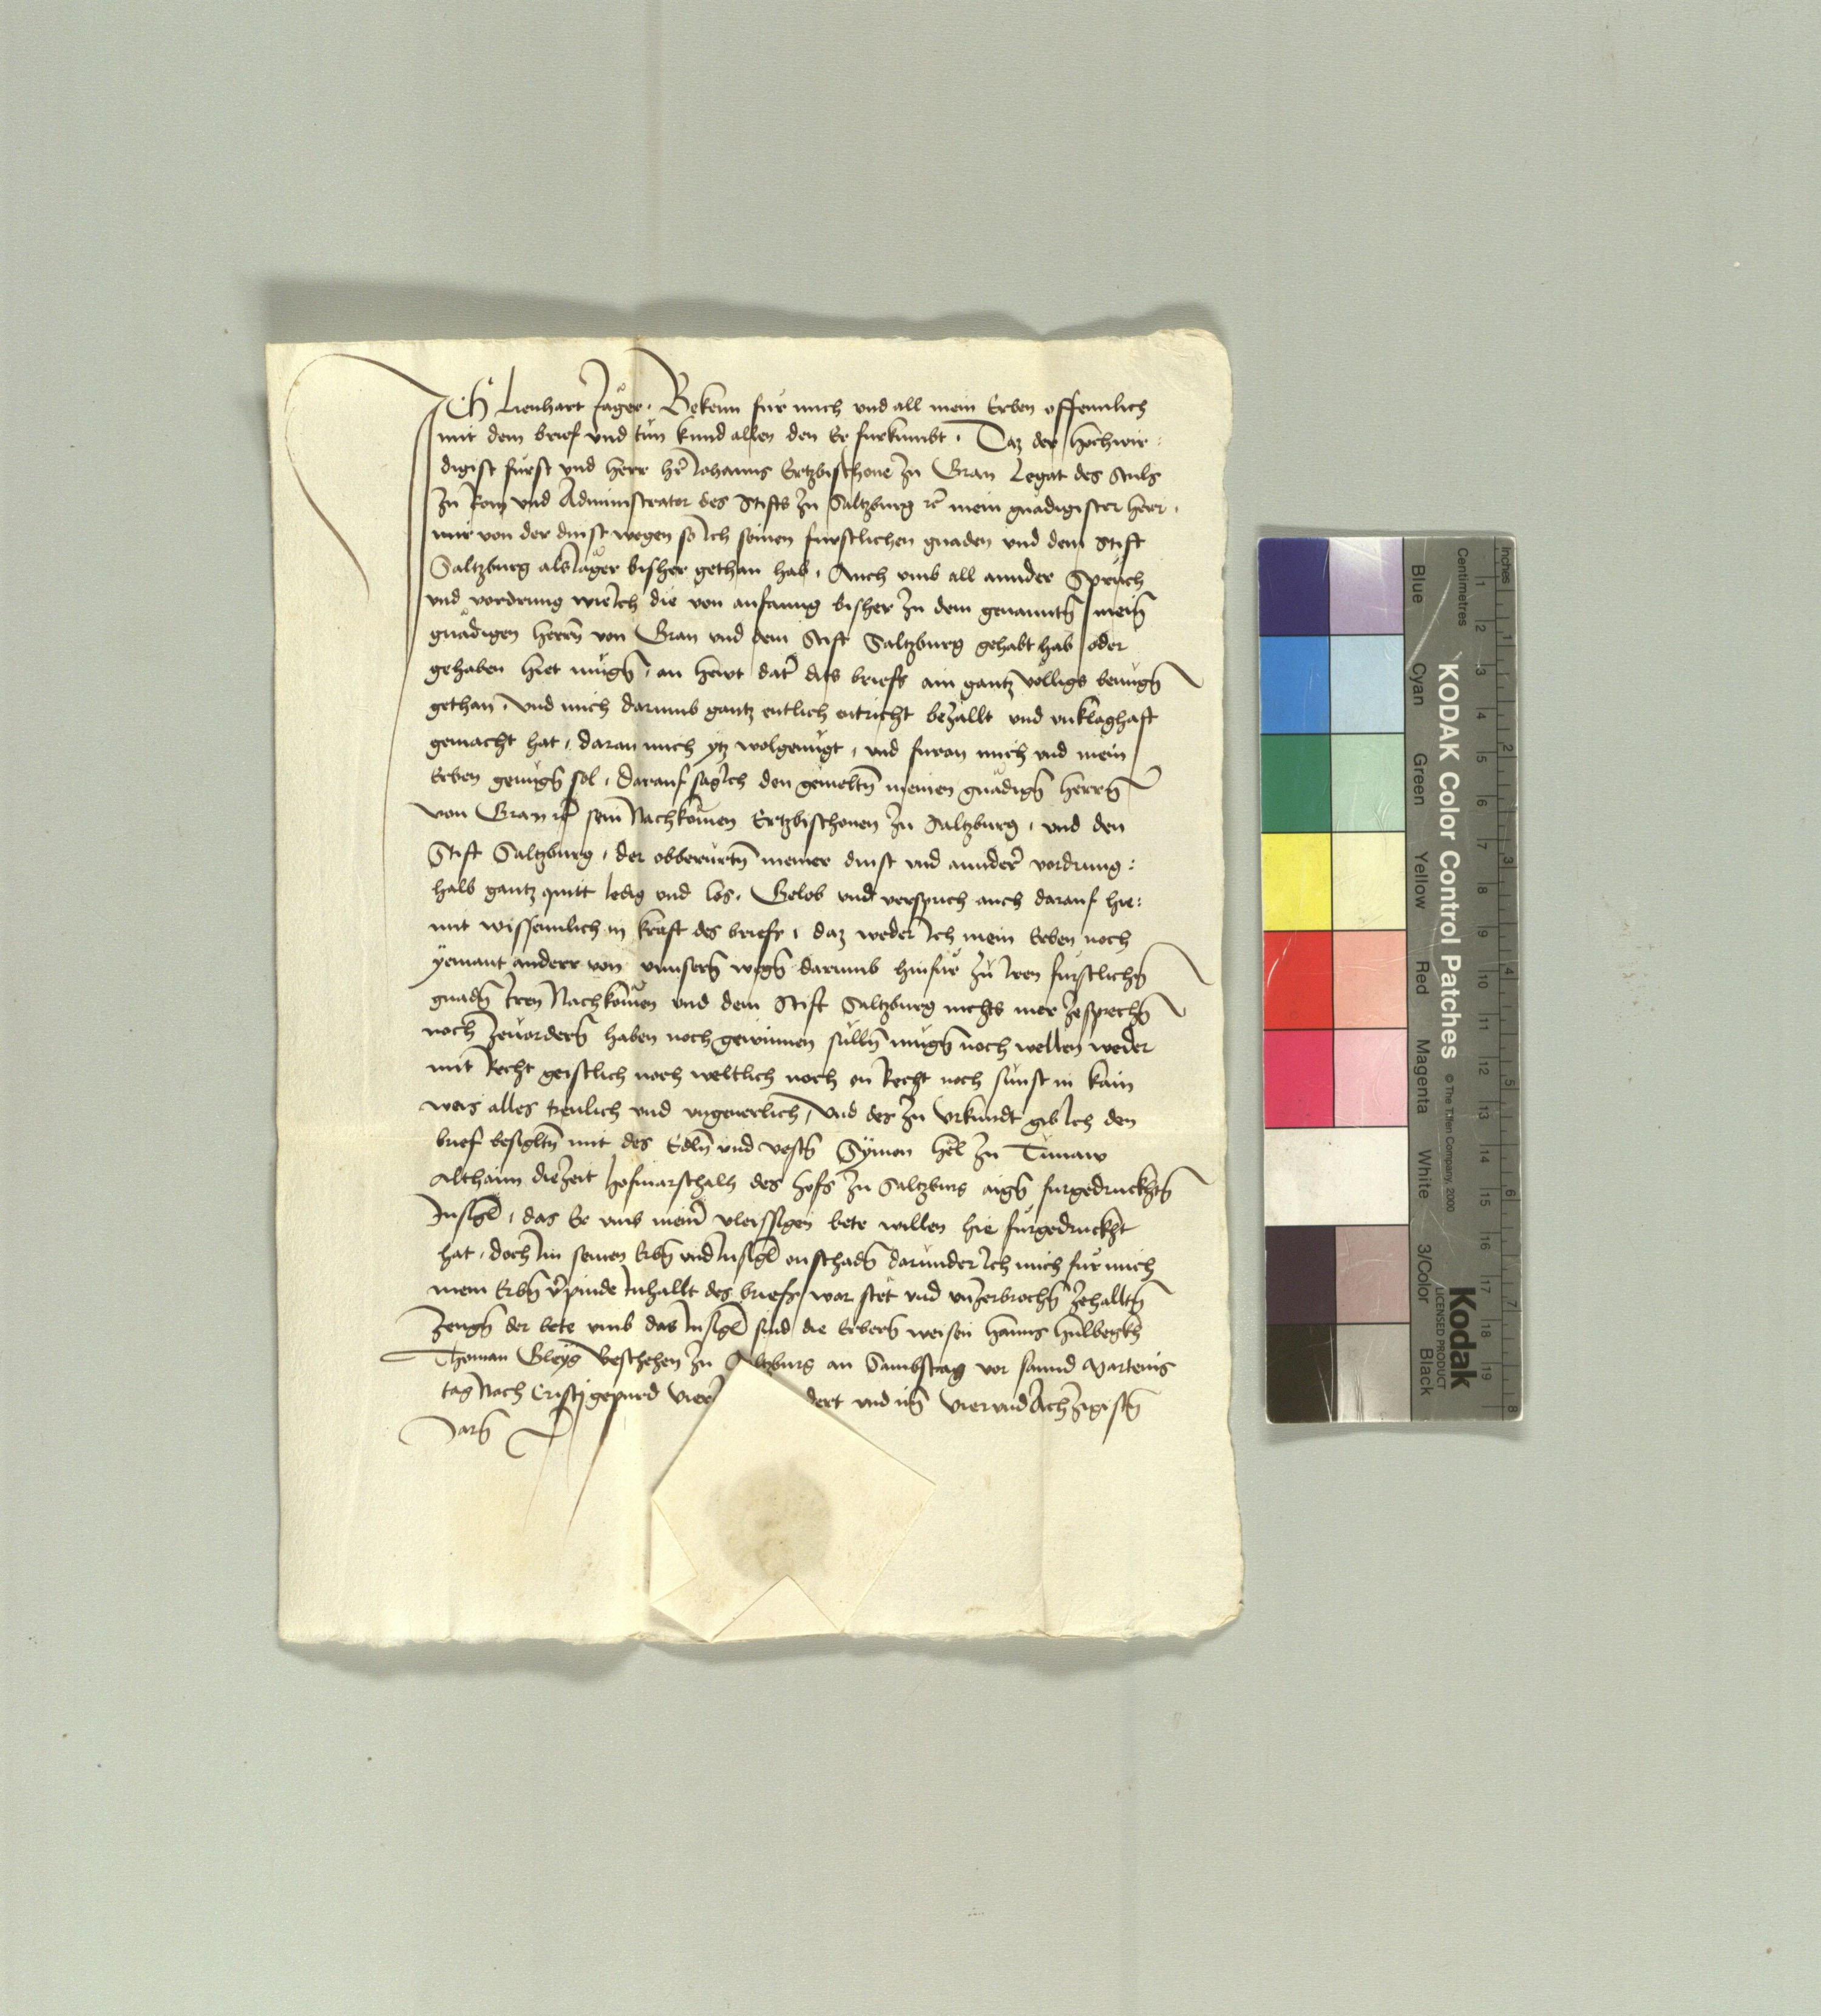 Ich Lienhart Jäger. Bekenn für mich und all mein Erben offennlich
mit dem brief und tün kund allen den Er fürkumbt. Daz der hochwir:
digist fürst und herr her Johanns Ertzbischove zu Gran Legat des Stuls
zu Rom und Administrator des Stifts zu Saltzburg rc mein gnädigister herr.
mir von der dinst wegen so Ich seinen fürstlichen gnaden und dem Stift
Saltzburg als Jäger bisher gethan hab. Auch umb all annder Sprüch
und vordrung wie Ich die von anfanng bisher zu dem genanntn mein
gnädigen herrn von Gran und dem Stift Saltzburg gehabt hab oder
gehaben hiet mügn, an hewt dat dits briefs ain gantz völligs benügn
gethan, und mich darumb gantz entlich entricht bezallt und unklaghaft
gemacht hat, daran mich ytz wolgenügt, und füran mich und mein
Erben genügn sol. Darauf sag Ich den gemeltn meinen gnädign herrn
von Gran rc sein Nachkomen Ertzbischoven zu Saltzburg, und den
Stift Saltzburg, der obberürtn meiner dinst und annder vordrung:
halb gantz quitt ledig und los. Gelob und versprich auch darauf hie:
mit wissennlich in kraft des briefs, daz weder Ich mein Erben noch
yemant anderr von unnsern wegn darumb hinfür zu Iren fürstlichn
gnadn Iren Nachkomen und dem Stift Saltzburg nichts mer zesprechn
noch zevordern haben noch gewinnen sülln mügn noch wellen weder
mit Recht geistlich noch weltlich noch on Recht noch sünst in kain
weis alles treulich und ungeuerlich, Und des zu Urkundt gib Ich den
brief besigltn mit des Edln und vestn Symon
Althaim diezeit hofmarschalh des hofs zu Saltzburg aign fürgedruckhtn
Insigl, das Er umb meiner vleissigen bete willen hie fürgedruckht
hat, doch Im seinen Erbn und Insigl on schadn darunder Ich mich für mich
mein Erbn verpinde Inhallt des briefs war stet und unzerbrochn zehalltn
Zeugn der bete umb das Insigl sind die Erbern weisen Hanns
Thoman Beschehen zu Saltzburg an Sambstag vor sannd Marteins
tag Nach Cristj gepurd Vier dert und im Vierundachzigistn
Jarn
KODAK Color Control Patches
© The Tiffen Company, 2000
Kodak
LICENSED PRODUCT
Blue Cyan Green Yellow Red Magenta White 3/Color Black
Inches 1 2 3 4 5 6 7 8
Centimetres 1 2 3 4 5 6 7 8 9 10 11 12 13 14 15 16 17 18 19